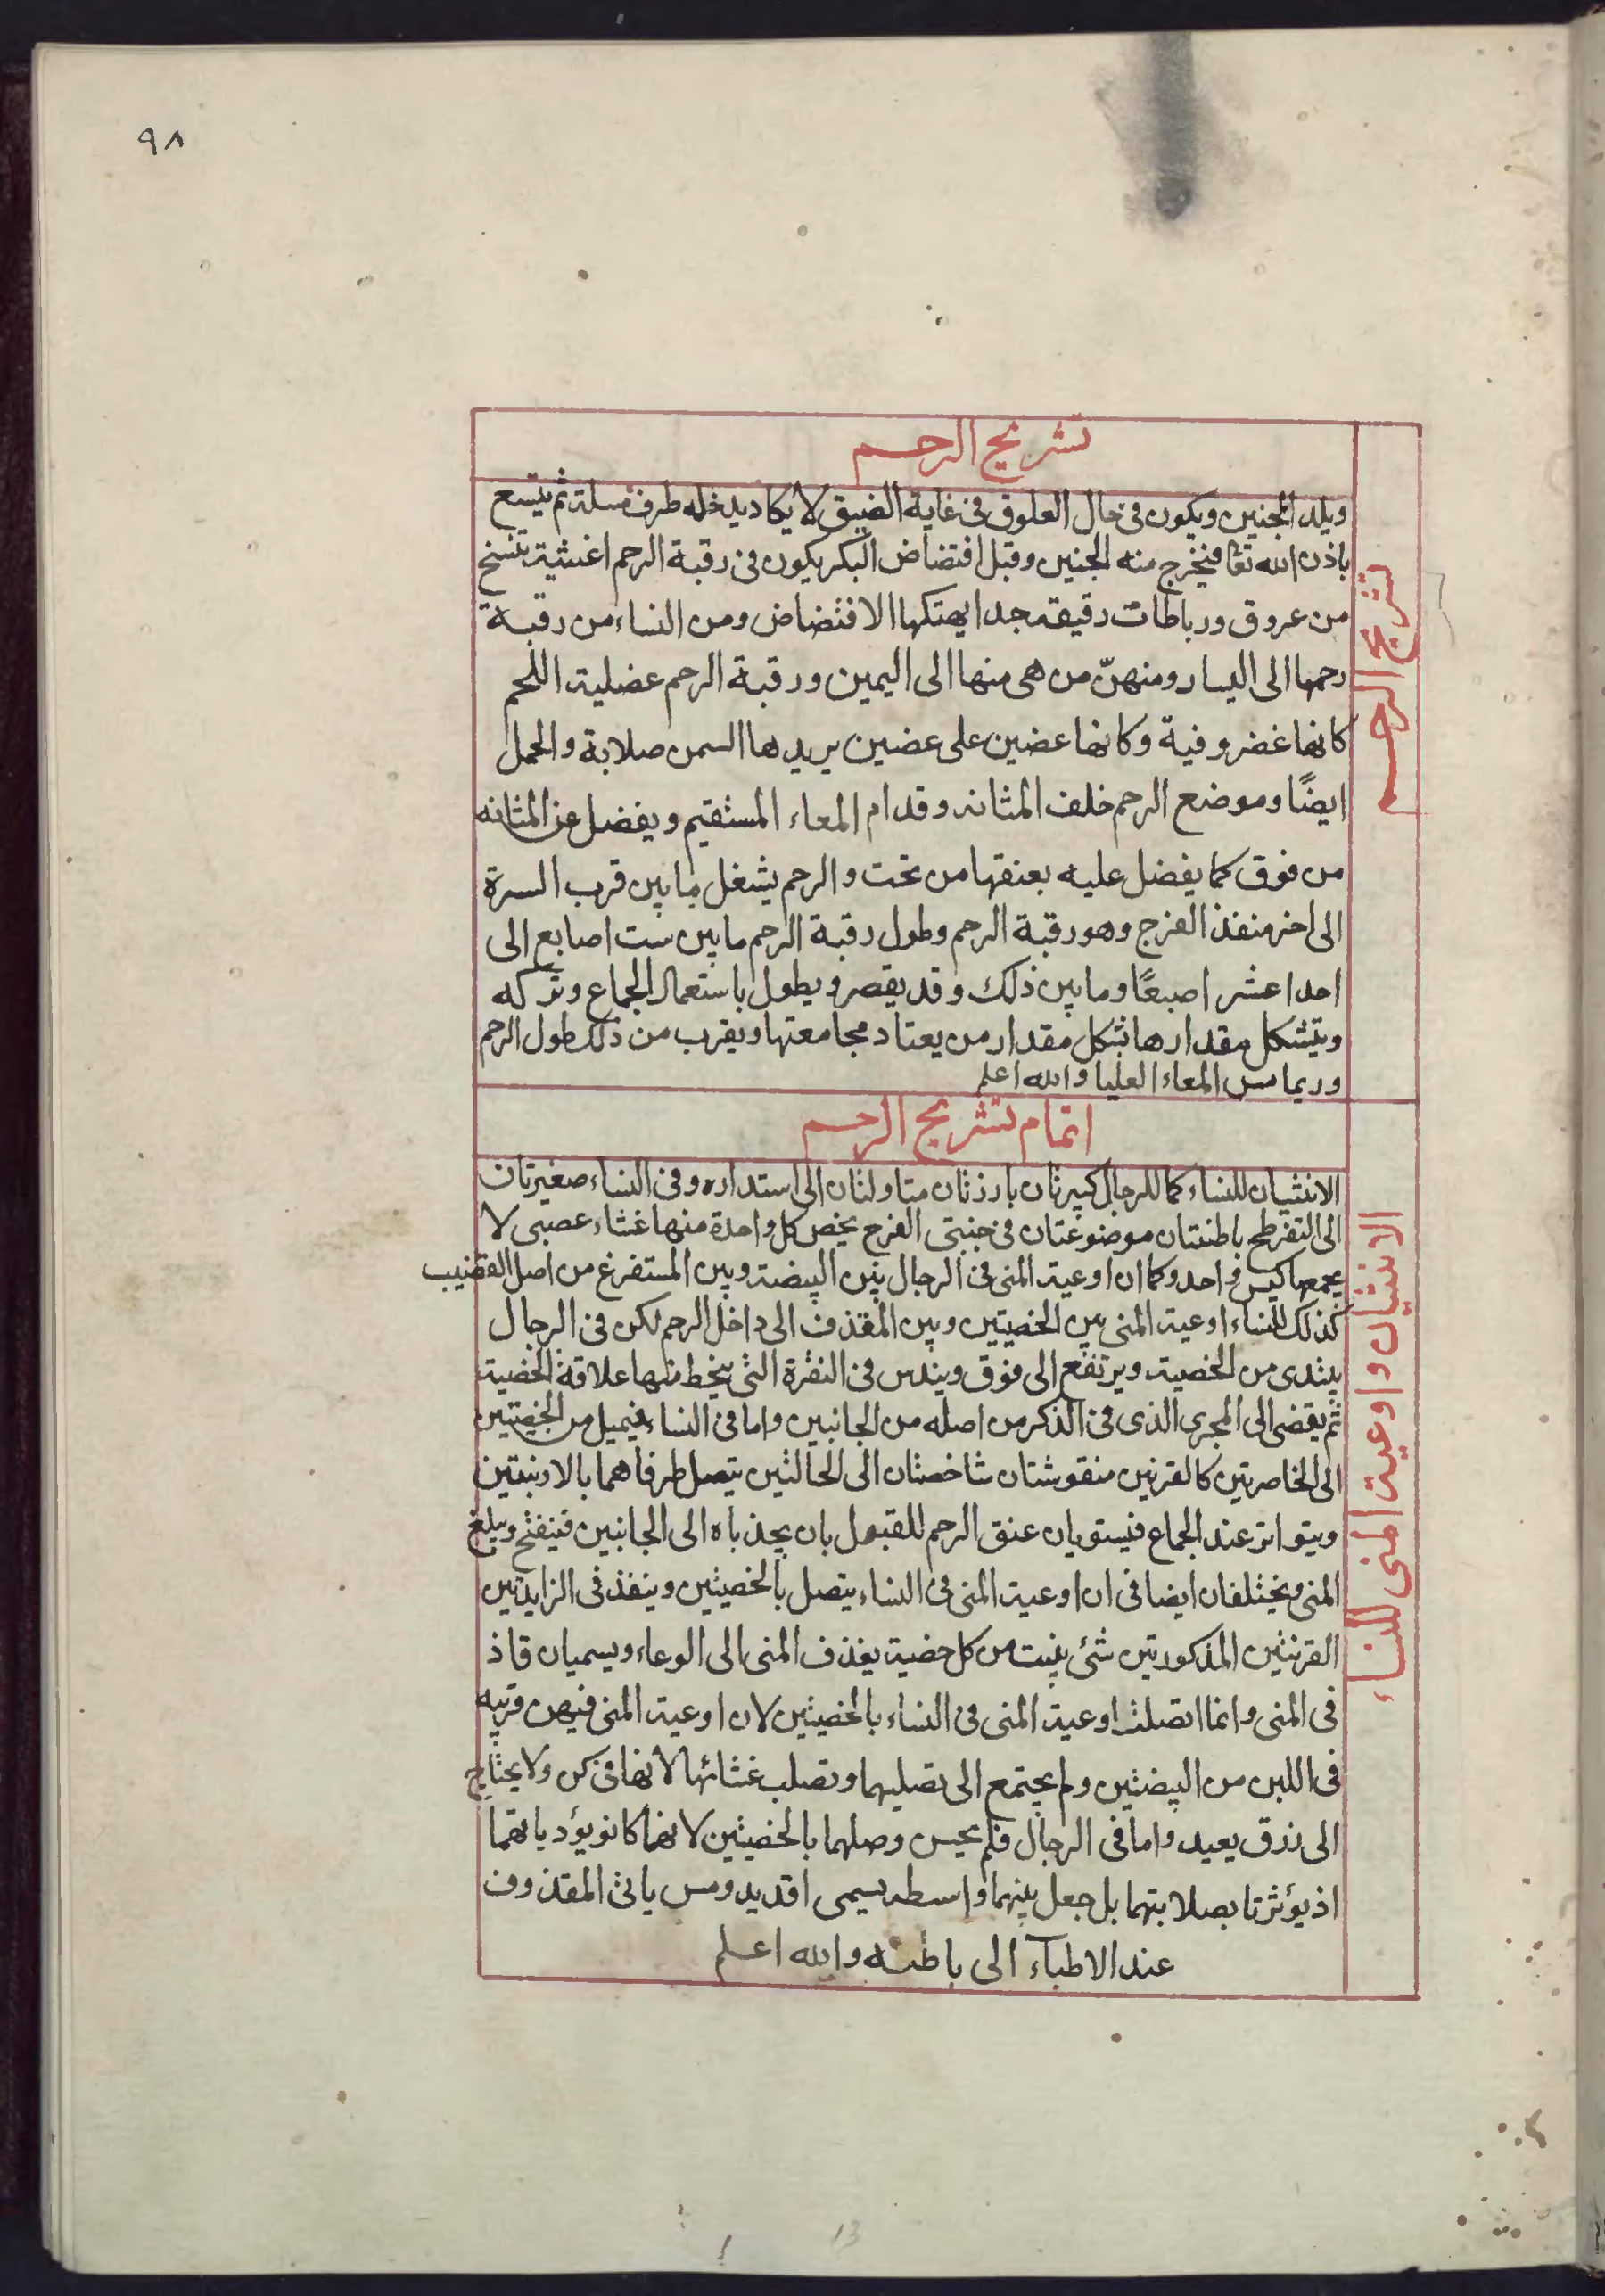 ٩٨
تشريح الرحم
تشريح الرحم
ويلد الجنين ويكون فى حال العلوق فى غاية الضيق لا يكاد يدخله طرف مسلة ثم يتسع
باذن الله تعا فيخرج منه الجنين وقبل افتضاض البكر يكون فى رقبة الرحم اغشية تنسخ
من عروق ورباطات رقيقه جدا يهتكها الافتضاض ومن النساء من رقبة
رحمها الى اليسار ومنهنّ من هى منها الى اليمين ورقبة الرحم عضلية اللحم
كانها غضروفية وكانها غضين على غضين يريدها السمن صلابة والحمل
ايضًا وموضع الرحم خلف المثانه وقدام المعاء المستقيم ويفضل عن المثانه
من فوق كما يفضل عليه بعنقها من تحت والرحم يشغل ما بين قرب السرة
الى اخر منفذ الفرج وهو رقبة الرحم وطول رقبة الرحم ما بين ست اصابع الى
احدا عشر اصبعًا وما بين ذلك وقد يقصر ويطول باستعمال الجماع وتركه
ويتشكل مقدارها بشكل مقدار من يعتاد مجامعتها ويقرب من ذلك طول الرحم
وربما مس المعاء العليا والله اعلم
اتمام تشريح الرحم
الانثيان واوعية المنى للنساء
الانثيان للنساء كما للرجال كبيرتان بارزتان متاولتان الى استداره وفى النساء صغيرتان
الى التفرطح باطنتان موضوعتان فى جنبتى الفرج يخص كل واحدة منها غشاء عصبى لا
يجمعها كيس واحد وكما ان اوعية المنى فى الرجال بين البيضة وبين المستفرغ من اصل القضيب
كذلك للنساء اوعية المنى بين الخصيتين وبين المقذف الى داخل الرحم لكن فى الرجال
يبتدى من الخصية ويرتفع الى فوق ويندس فى النقرة التى ينحط منها علاقة الخصية
ثم يفضى الى المجرى الذى فى الذكر من اصله من الجانبين واما فى النساء فيميل من الخصيتين
الى الخاصرتين كالقرنين منقوشتان شاخصتان الى الحالتين يتصل طرفاهما بالاربنتين
ويتواتر عند الجماع فيستويان عنق الرحم للقبول بان يجذباه الى الجانبين فينفتح ويبلغ
المنى ويختلفان ايضا فى ان اوعية المنى فى النساء يتصل بالخصيتين وينفذ فى الزايدتين
القرنتين المذكورتين شئ ينبت من كل خصية يقذف المنى الى الوعاء ويسميان قاذ
فى المنى وانما اتصلت اوعية المنى فى النساء بالخصيتين لان اوعية المنى فيهن قريبه
فى اللين من البيضتين ولم يجتمع الى تصليبهما وتصلب غشائها لانها فى كن ولا يحتاج
الى زرق بعيد واما فى الرجال فلم يحسن وصلهما بالخصيتين لانهما كانو يؤديانهما
اذ يؤثرتا بصلابتهما بل جعل بينهما واسطه يسمى اقديد ومس ياتى المقذوف
عند الاطبآء الى باطنه والله اعلم
13